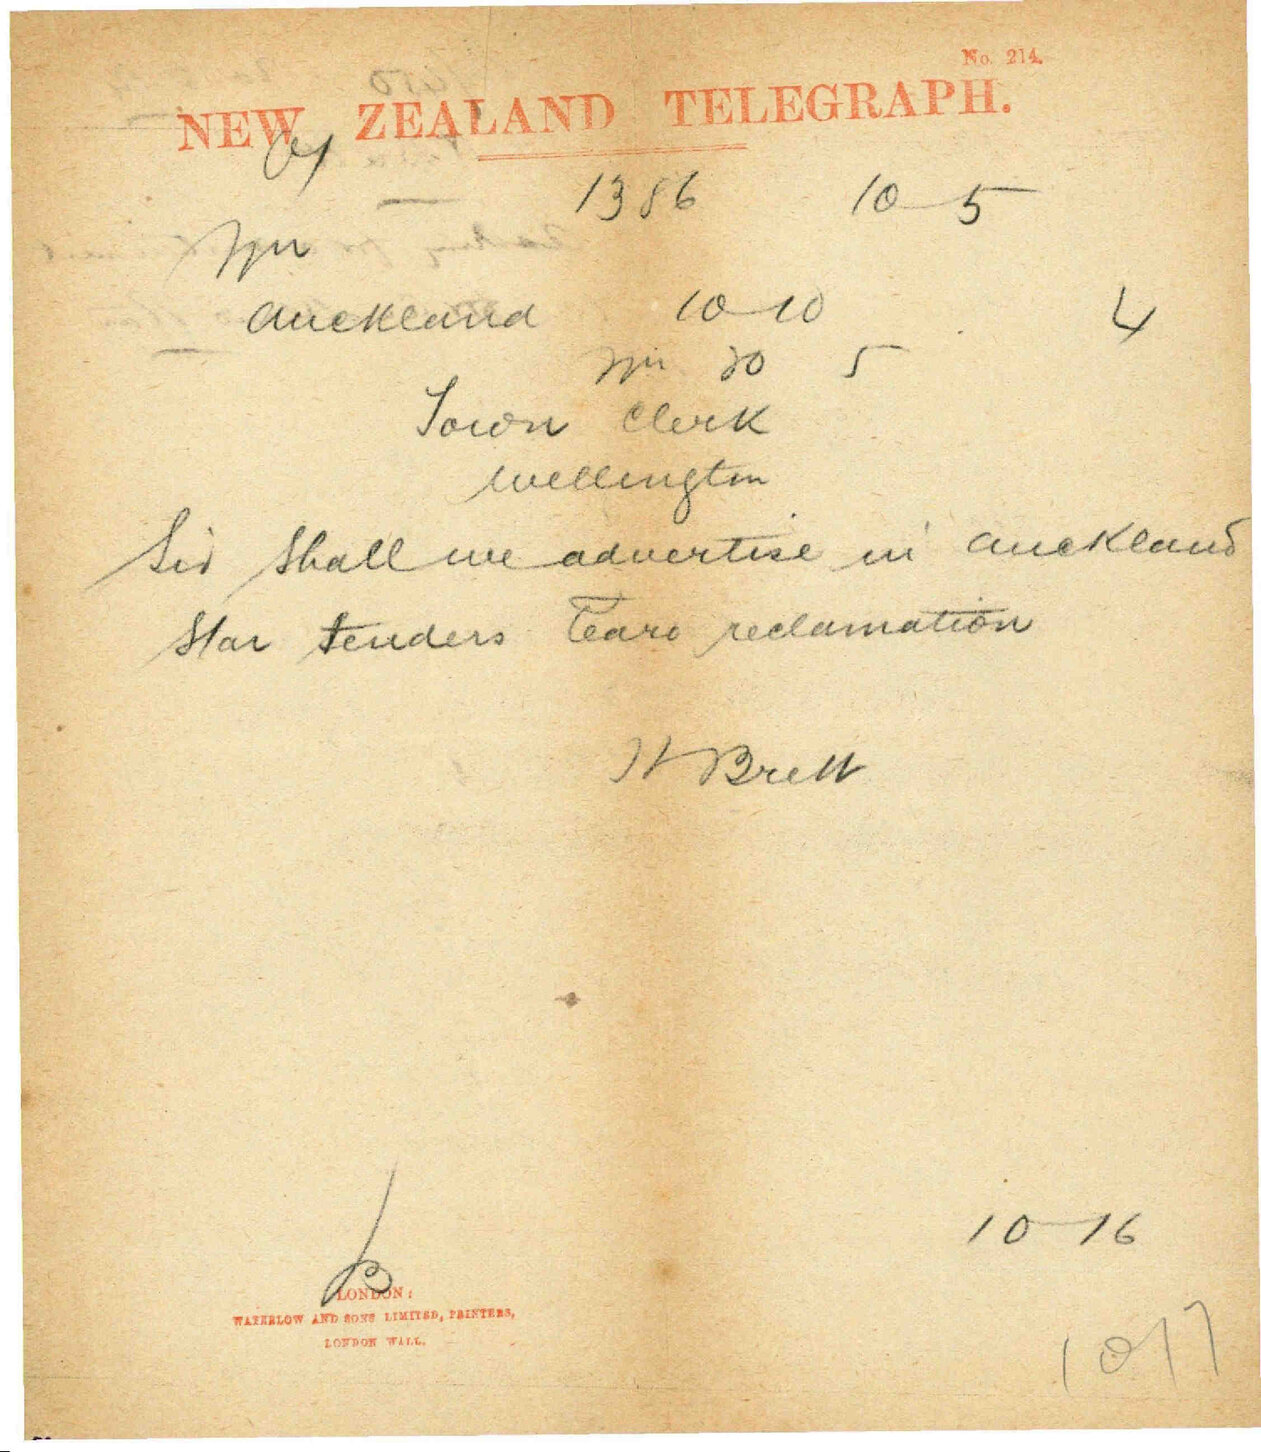 No. 214.
NEW ZEALAND TELEGRAPH.
1386 10-5
Auckland 10-10 4
20 5
Town Clerk
Wellington
Sir Shall we advertise in Auckland
Star tenders Tearo reclamation
H Brett
10-16
LONDON:
WATERLOW AND SONS LIMITED, PRINTERS,
LONDON WALL.
1077